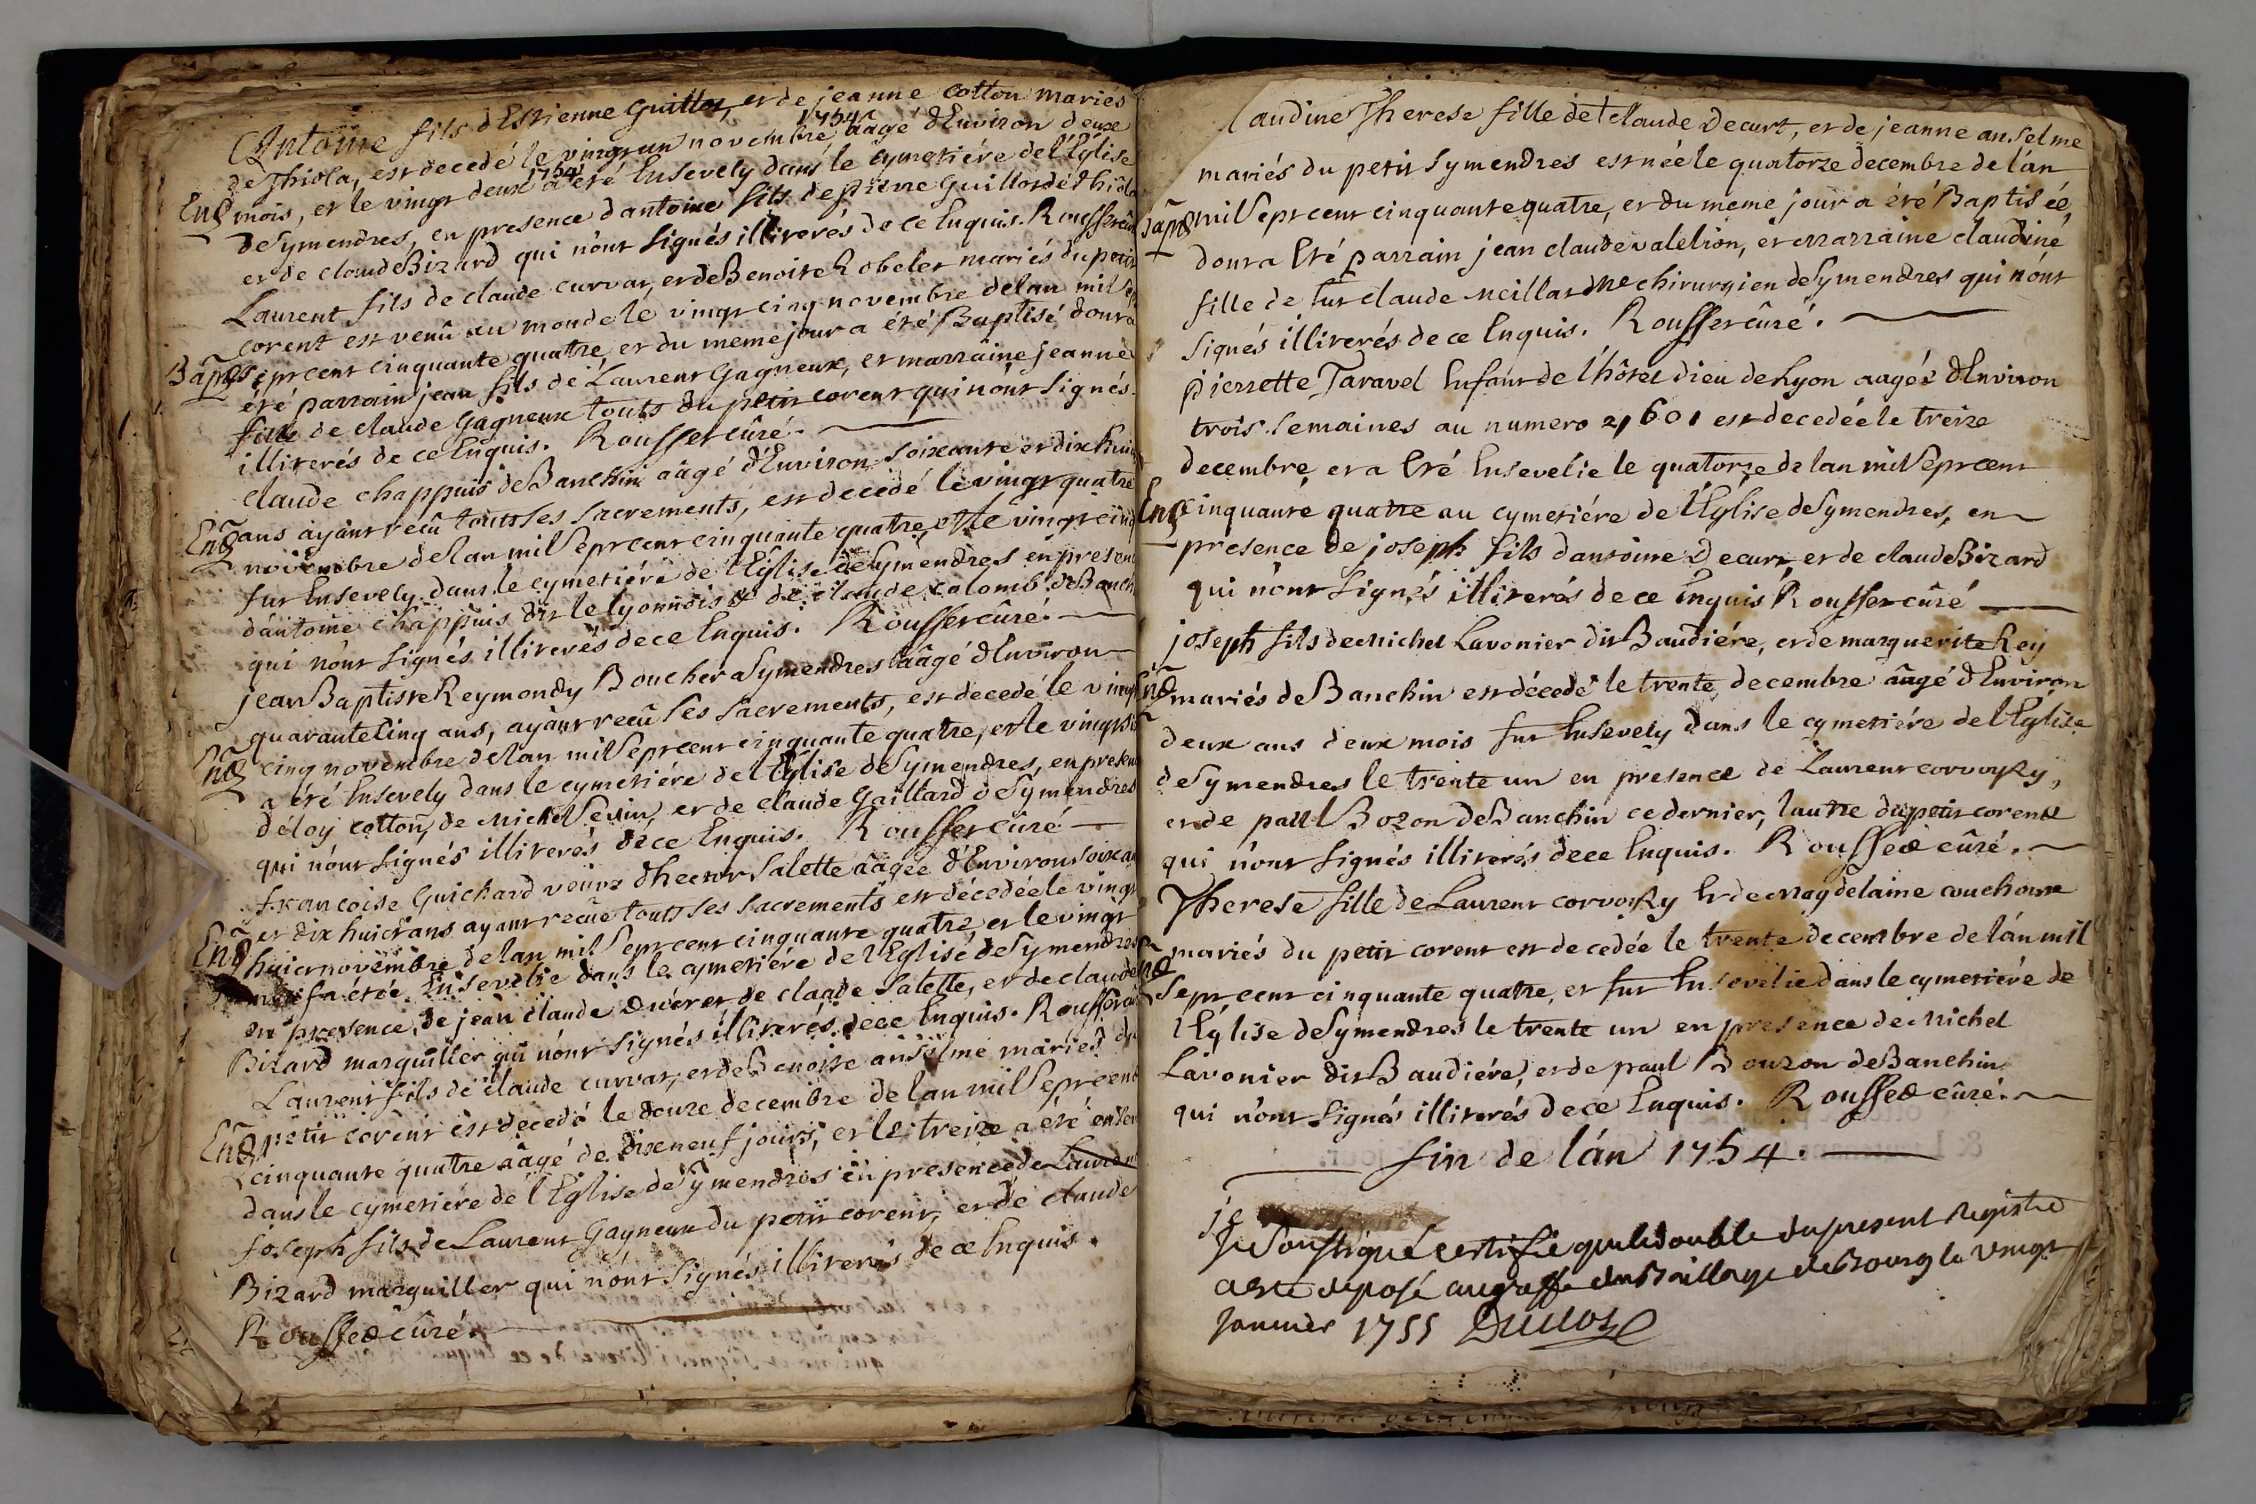 Antoine fils d'Estienne Guillot, et de jeanne Cotton mariés
de Thiola, est decedé le vingt un novembre 1754 aagé d'Environ deux
mois, et le vingt deux 1754 a eté Ensevely dans le cymetiére de l'Eglise
Ens
de Symendres, en presence d'antoine fils de pierre Guillot de Thiola
et de claude Bizard qui n'ont signés illiterés de ce Enquis. Rousset cûré
Laurent fils de claude curvat, et de Benoite Robelet mariés du petit
corent est venû au monde le vingt cinq novembre de lan mil
Bap sept cent cinquante quatre et du meme jour a été Baptisé, dont a
été parrain jean fils de Laurent Gagneux, et marraine jeanne
fille de claude Gagneux touts du petit corent qui n'ont signés
illiterés de ce Enquis. Rousset cûré.
claude chappuis de Banchin aâgé d'Environ soixante et dix huit
ans ayant recû touts ses sacrements, est decedé le vingt quatre
Ens
novembre de lan mil sept cent cinquante quatre, et le vingt cinq
fut Ensevely dans le cymetiére de l'Eglise de Symendres en presence
d'antoine chappuis dit le lyonnois et de claude colomb de Banchin
qui n'ont signés illiterés de ce Enquis. Rousset cûré.
jean Baptiste Reymondy Boucher a Symendres aâgé d'Environ
quarante Cinq ans, ayant recû ses sacrements, est decedé le vingt
Ens cinq novembre de lan mil sept cent cinquante quatre, et le vingt six
a été Ensevely dans le cymetiére de l'Eglise de Symendres, en presence
d'éloy cotton, de michel Sevin, et de claude Gaillard de Symendres
qui n'ont signés illiterés de ce Enquis. Rousset cûré
francoise Guichard veuve d'hector Salette aâgée d'Environ soixante
et dix huict ans ayant recûe touts ses sacrements est décedée le vingt
Ens huict novembre de lan mil sept cent cinquante quatre, et le vingt
neuf a étée Ensevelie dans le cymetiére de l'Eglise de Symendres
en presence, de jean claude de claude Salette, et de claude
Bizard marguiller qui n'ont signés illiterés de ce Enquis. Rousset cûré
Laurent fils de claude curvat, et de Benoite anselme mariés du
Ens petit corent est decedé le douze decembre de lan mil sept cent
cinquante quatre aâgé de dixneuf jours, et le treize a été ensevely
dans le cymetiére de l'Eglise de Symendres en presence de Laurent
joseph fils de Laurent Gagneux du petit corent, et de claude
Bizard marguiller qui n'ont signés illiterés de ce Enquis.
Rousset cûré.
laudine Therese fille de claude Decurt, et de jeanne anselme
mariés du petit Symendres est née le quatorze decembre de l'an
Bap mil sept cent cinquante quatre, et du meme jour a été Baptisée,
dont a Eté parrain jean claude valelion, et marraine claudine
fille de sur claude meillard me chirurgien de Symendres qui n'ont
signés illiterés de ce Enquis. Rousset cûré.
pierrette Taravel Enfant de l'hôtel dieu de Lyon aagés d'Environ
trois semaines au numero 21601 est decedée le treize
decembre, et a Eté Ensevelie le quatorze de lan mil sept cent
Ens cinquante quatre au cymetiére de l'Eglise de Symendres, en
presence de joseph fils d'antoine Decurt, et de claude Bizard
qui n'ont signés illiterés de ce Enquis Rousset cûré
joseph fils de michel Lavonier dit Baudiére, et de marguerite Rey
Ens mariés de Banchin est décedé le trente decembre aâgé d'Environ
deux ans deux mois fut Ensevely dans le cymetiére de l'Eglise
de Symendres le trente un en presence de Laurent corvoysy,
et de paul Bozon de Banchin ce dernier, lautre du petit corent
qui n'ont signés illiterés de ce Enquis. Rousset cûré.
Therese fille de Laurent corvoysy Et de magdelaine couchoux
mariés du petit corent est decedée le trente decembre de l'an mil
Ens
sept cent cinquante quatre, et fut Ensevelie dans le cymetiére de
l'Eglise de Symendres le trente un en presence de michel
Lavonier dit Baudiére, et de paul Bouzon de Banchin
qui n'ont signés illiterés de ce Enquis. Rousset cûré.
fin de l'án 1754.
je
Je Soussigné certifie que le double du present registre
a eté deposé au greffe du Baillage de Bourg le vingt
Janvier 1755 Duclos